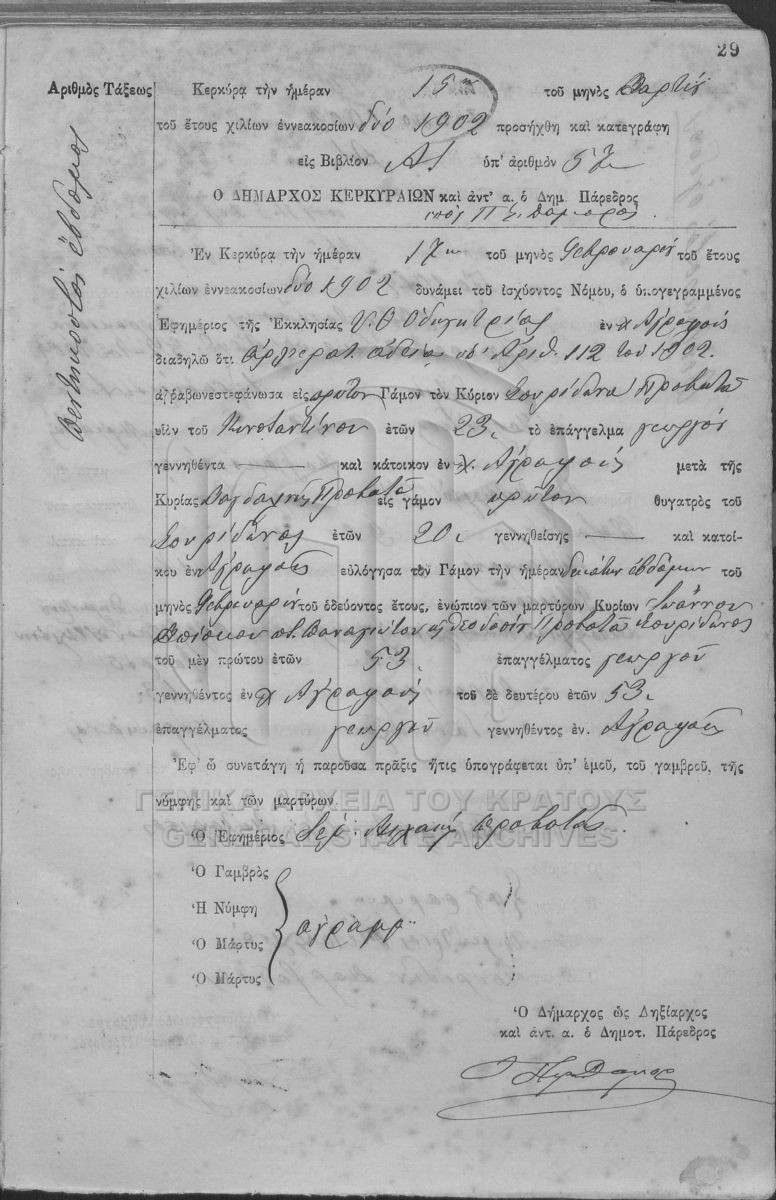 29
Ἀριθμὸς Τάξεως
Πεντηκοστὸς ἕβδομος
Κερκύρᾳ τὴν ἡμέραν 15ην τοῦ μηνὸς Μαρτίου
τοῦ ἔτους χιλίων ἐννεακοσίων δύο 1902 προσήχθη καὶ κατεγράφη
εἰς Βιβλίον Α/ ὑπ' ἀριθμὸν 57
Ο ΔΗΜΑΡΧΟΣ ΚΕΡΚΥΡΑΙΩΝ καὶ ἀντ' α. ὁ Δημ. Πάρεδρος
Ἐν Κερκύρᾳ τὴν ἡμέραν 17ην τοῦ μηνὸς Φεβρουαρίου τοῦ ἔτους
χιλίων ἐννεακοσίων δύο 1902 δυνάμει τοῦ ἰσχύοντος Νόμου, ὁ ὑπογεγραμμένος
Ἐφημέριος τῆς Ἐκκλησίας Υ. Θ Ὁδηγητρίας ἐν χ. Ἀγραφοῖς
διαδηλῶ ὅτι ἀρχιερατ. ἀδείᾳ ὑπ' Ἀριθ. 112 τοῦ 1902.
ἀρραβώνεστεφάνωσα εἰς πρῶτον Γάμον τὸν Κύριον Σπυρίδωνα Προβατᾶ
υἱὸν τοῦ Κωνσταντίνου ἐτῶν 23. τὸ ἐπάγγελμα γεωργόν
γεννηθέντα — καὶ κάτοικον ἐν χ. Ἀγραφοῖς μετὰ τῆς
Κυρίας Μαγδαληνῆς Προβατᾶ εἰς γάμον πρῶτον θυγατρὸς τοῦ
Σπυρίδωνος ἐτῶν 20. γεννηθείσης — καὶ κατοί-
κου ἐν Ἀγραφοῖς εὐλόγησα τὸν Γάμον τὴν ἡμέραν δεκάτην ἑβδόμην τοῦ
μηνὸς Φεβρουαρίου τοῦ ὁδεύοντος ἔτους, ἐνώπιον τῶν μαρτύρων Κυρίων Ἰωάννου
Παναγιώτου Θεοδοσίου Προβατᾶ Σπυρίδωνος
τοῦ μὲν πρώτου ἐτῶν 53. ἐπαγγέλματος γεωργοῦ
γεννηθέντος ἐν χ Ἀγραφοῖς τοῦ δὲ δευτέρου ἐτῶν 53.
ἐπαγγέλματος γεωργοῦ γεννηθέντος ἐν. Ἀγραφοῖς
Ἐφ' ᾧ συνετάγη ἡ παροῦσα πρᾶξις ἥτις ὑπογράφεται ὑπ' ἐμοῦ, τοῦ γαμβροῦ, τῆς
νύμφης καὶ τῶν μαρτύρων
ΓΕΝΙΚΑ ΑΡΧΕΙΑ ΤΟΥ ΚΡΑΤΟΥΣ
GENERAL STATE ARCHIVES
Ὁ Ἐφημέριος Ἱερ. Μιχαὴλ Προβατᾶς.
Ὁ Γαμβρὸς
Ἡ Νύμφη
ἀγράμμ.
Ὁ Μάρτυς
Ὁ Μάρτυς
Ὁ Δήμαρχος ὡς Ληξίαρχος
καὶ ἀντ. α. ὁ Δημοτ. Πάρεδρος